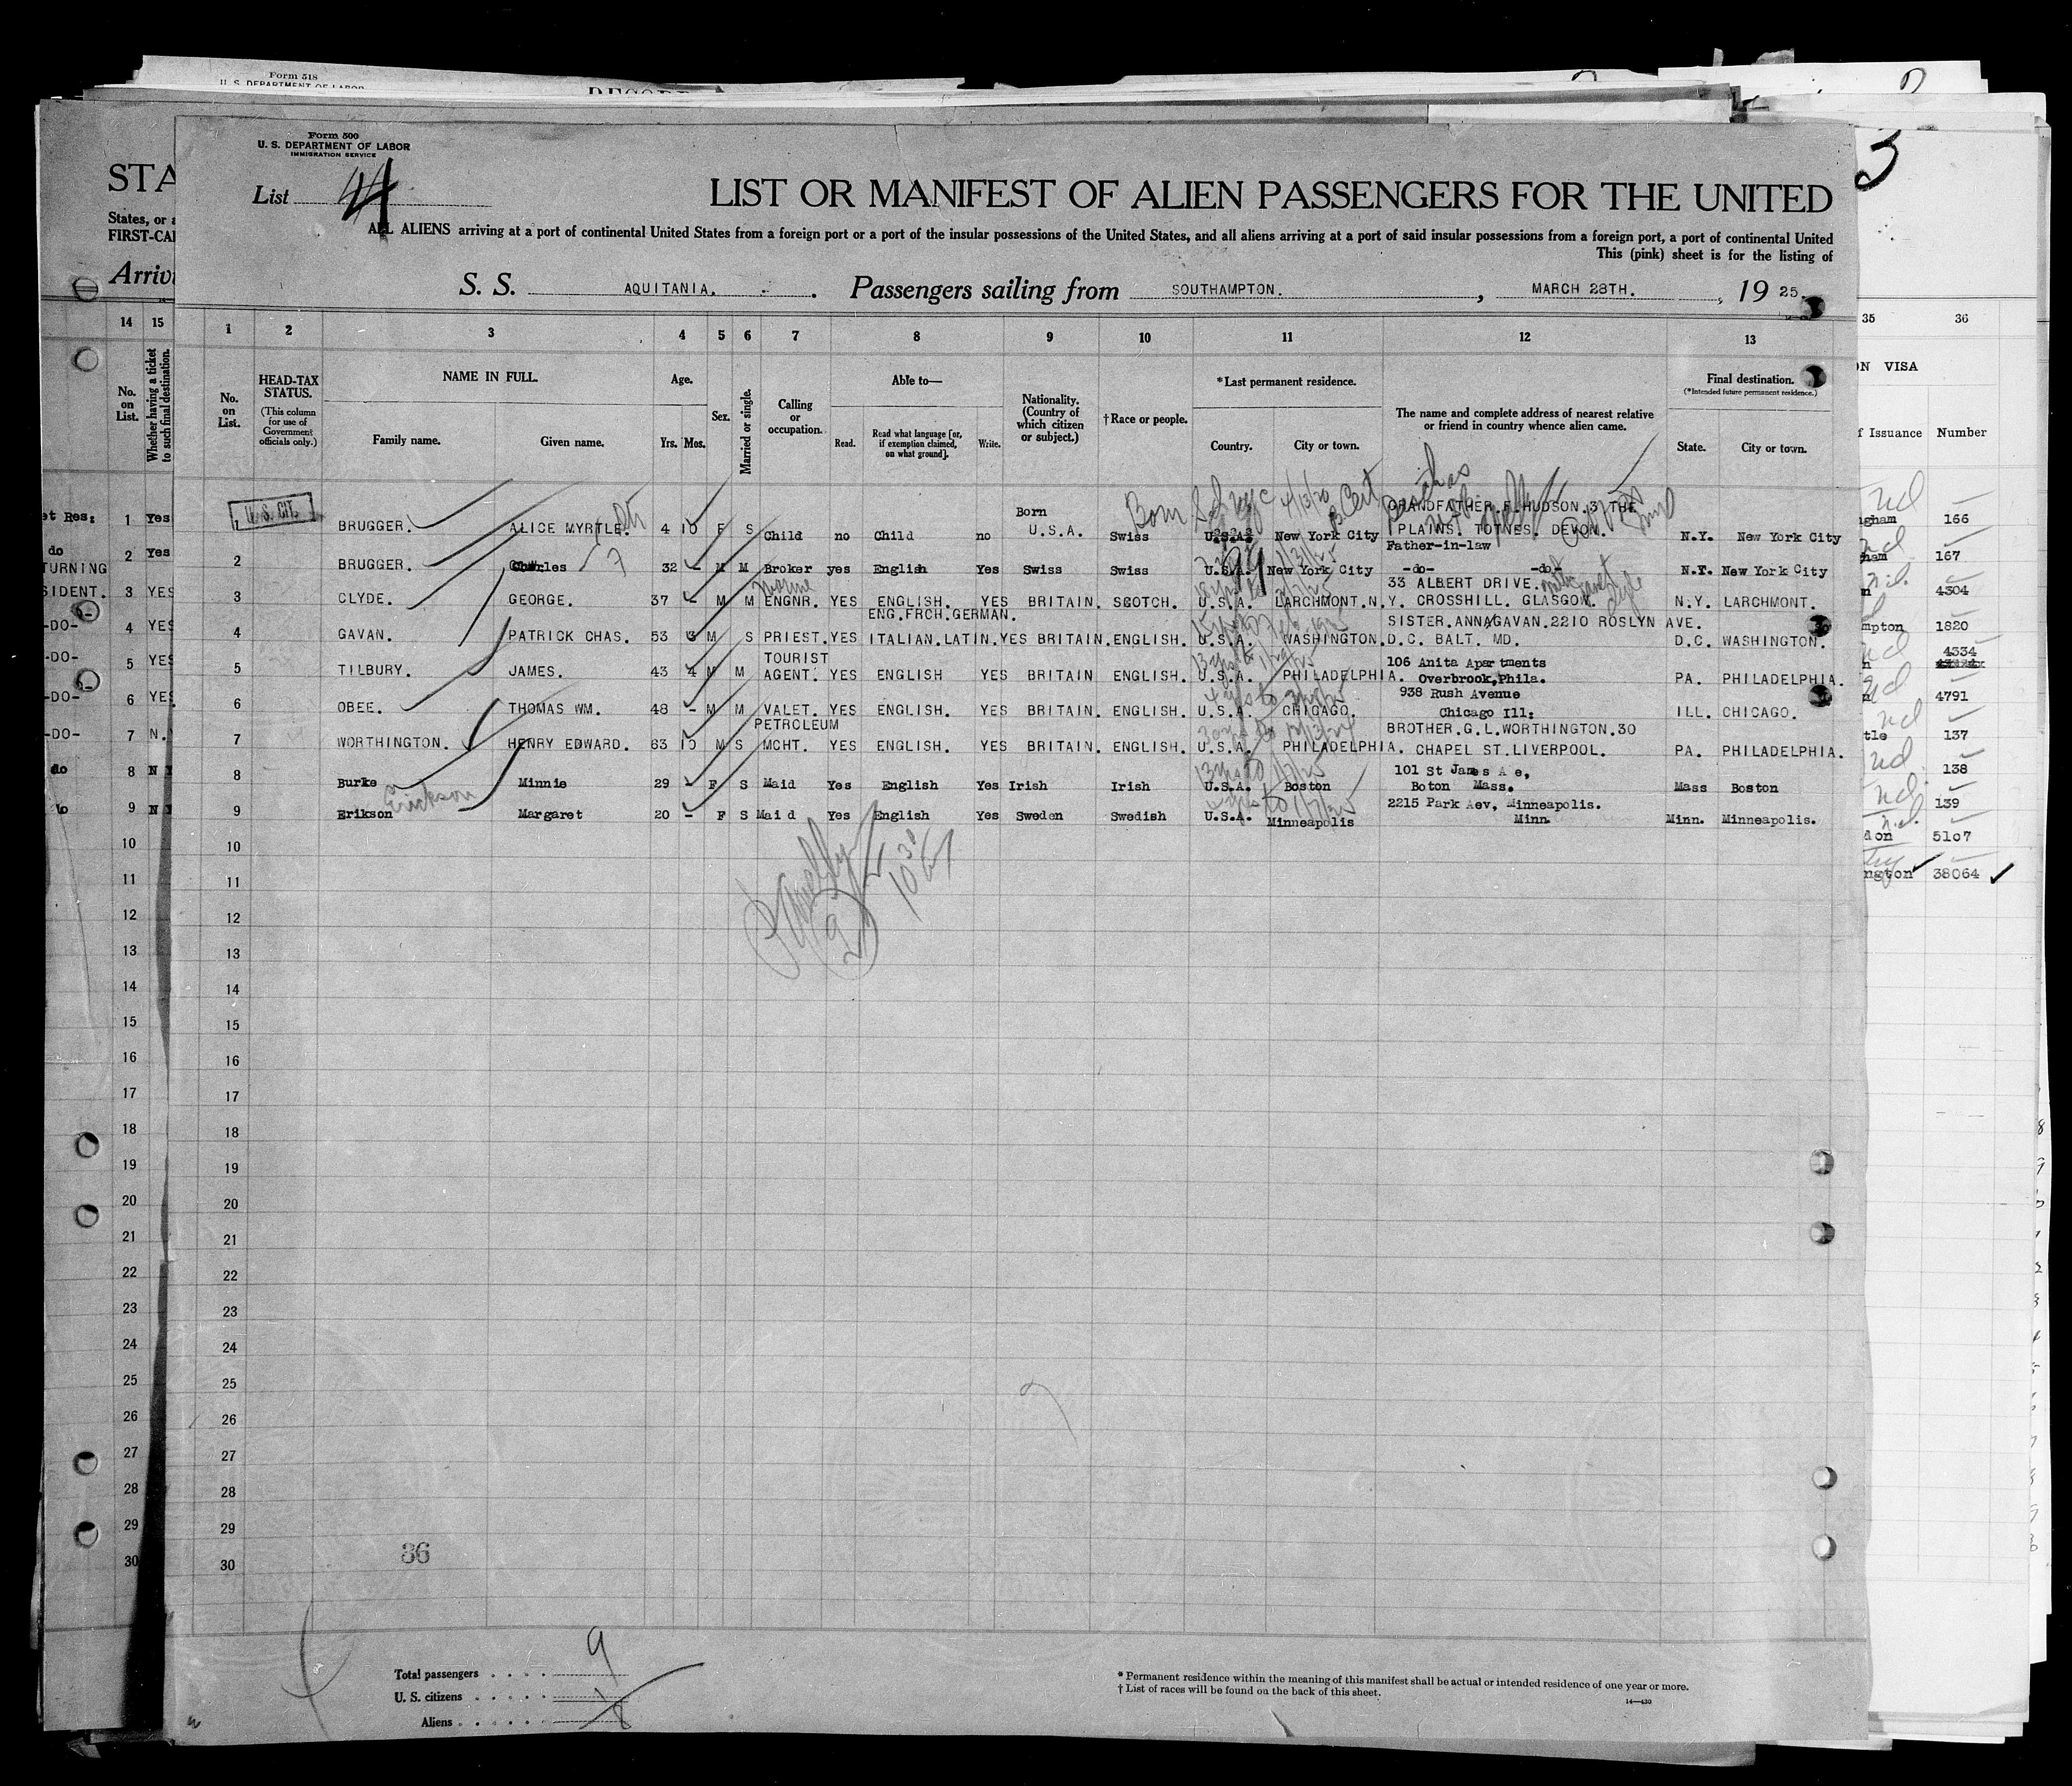 Form 518
U. S. DEPARTMENT OF LABOR
Form 500
U. S. DEPARTMENT OF LABOR
IMMIGRATION SERVICE
STA
List 4
LIST OR MANIFEST OF ALIEN PASSENGERS FOR THE UNITED
3
States, or a
FIRST-CA
ALL ALIENS arriving at a port of continental United States from a foreign port or a port of the insular possessions of the United States, and all aliens arriving at a port of said insular possessions from a foreign port, a port of continental United
This (pink) sheet is for the listing of
Arriv
S. S. AQUITANIA. Passengers sailing from SOUTHAMPTON. , MARCH 28TH. , 19 25.
14 15 1 2 3 4 5 6 7 8 9 10 11 12 13 35 36
No. on List.
Whether having a ticket to such final destination.
No. on List.
HEAD-TAX STATUS.
(This column for use of Government officials only.)
NAME IN FULL.
Family name.
Given name.
Age.
Yrs. Mos.
Sex.
Married or single.
Calling or occupation.
Able to—
Read.
Read what language [or, if exemption claimed, on what ground].
Write.
Nationality. (Country of which citizen or subject.)
†Race or people.
*Last permanent residence.
Country.
City or town.
The name and complete address of nearest relative or friend in country whence alien came.
Final destination.
(*Intended future permanent residence.)
State.
City or town.
ON VISA
f Issuance Number
U. S. CIT.
1 BRUGGER. ALICE MYRTLE. 4 10 F S Child no Child no Born U.S.A. Swiss U.S.A. New York City GRANDFATHER.F.HUDSON.3 THE PLAINS. TOTNES. DEVON. N.Y. New York City
Born
4/13/20
2 BRUGGER. Charles 32 - M M Broker yes English Yes Swiss Swiss U.S.A. New York City Father-in-law -do- -do- N.Y. New York City
3 CLYDE. GEORGE. 37 - M M ENGNR. YES ENGLISH. YES BRITAIN. SCOTCH. U.S.A. LARCHMONT.N.Y. 33 ALBERT DRIVE. CROSSHILL. GLASGOW. N.Y. LARCHMONT.
4 GAVAN. PATRICK CHAS. 53 3 M S PRIEST. YES ENG.FRCH.GERMAN. ITALIAN.LATIN. YES BRITAIN. ENGLISH. U.S.A. WASHINGTON.D.C. SISTER.ANNAGAVAN.2210 ROSLYN AVE. BALT. MD. D.C. WASHINGTON.
5 TILBURY. JAMES. 43 4 M M TOURIST AGENT. YES ENGLISH YES BRITAIN ENGLISH. U.S.A. PHILADELPHIA. 106 Anita Apartments Overbrook,Phila. PA. PHILADELPHIA.
6 OBEE. THOMAS WM. 48 - M M VALET. YES ENGLISH. YES BRITAIN. ENGLISH. U.S.A. CHICAGO. 938 Rush Avenue Chicago Ill: ILL. CHICAGO.
7 WORTHINGTON. HENRY EDWARD. 63 10 M S PETROLEUM MCHT. YES ENGLISH. YES BRITAIN. ENGLISH. U.S.A. PHILADELPHIA. BROTHER.G.L.WORTHINGTON.30 CHAPEL ST.LIVERPOOL. PA. PHILADELPHIA.
8 Burke Minnie 29 - F S Maid Yes English Yes Irish Irish U.S.A. Boston 101 St James A e, Boton Mass. Mass Boston
Erickson
9 Erikson Margaret 20 - F S Maid Yes English Yes Sweden Swedish U.S.A. Minneapolis 2215 Park Aev, Minneapolis. Minn. Minn. Minneapolis.
10
11
12
13
14
15
16
17
18
19
20
21
22
23
24
25
26
27
28
29
30
et Res: 1 Yes
do 2 Yes
TURNING
SIDENT. 3 YES
-DO- 4 YES
-DO- 5 YES
-DO- 6 YES
-DO- 7 N.
do 8 N
9 N
10
11
12
13
14
15
16
17
18
19
20
21
22
23
24
25
26
27
28
29
30
gham 166
ham 167
4304
mpton 1820
4334
4791
tle 137
138
139
don 5107
ngton 38064
36
Total passengers . . . . 9
U. S. citizens . . . . . 1
Aliens . . . . . . 8
* Permanent residence within the meaning of this manifest shall be actual or intended residence of one year or more.
† List of races will be found on the back of this sheet.
14—430